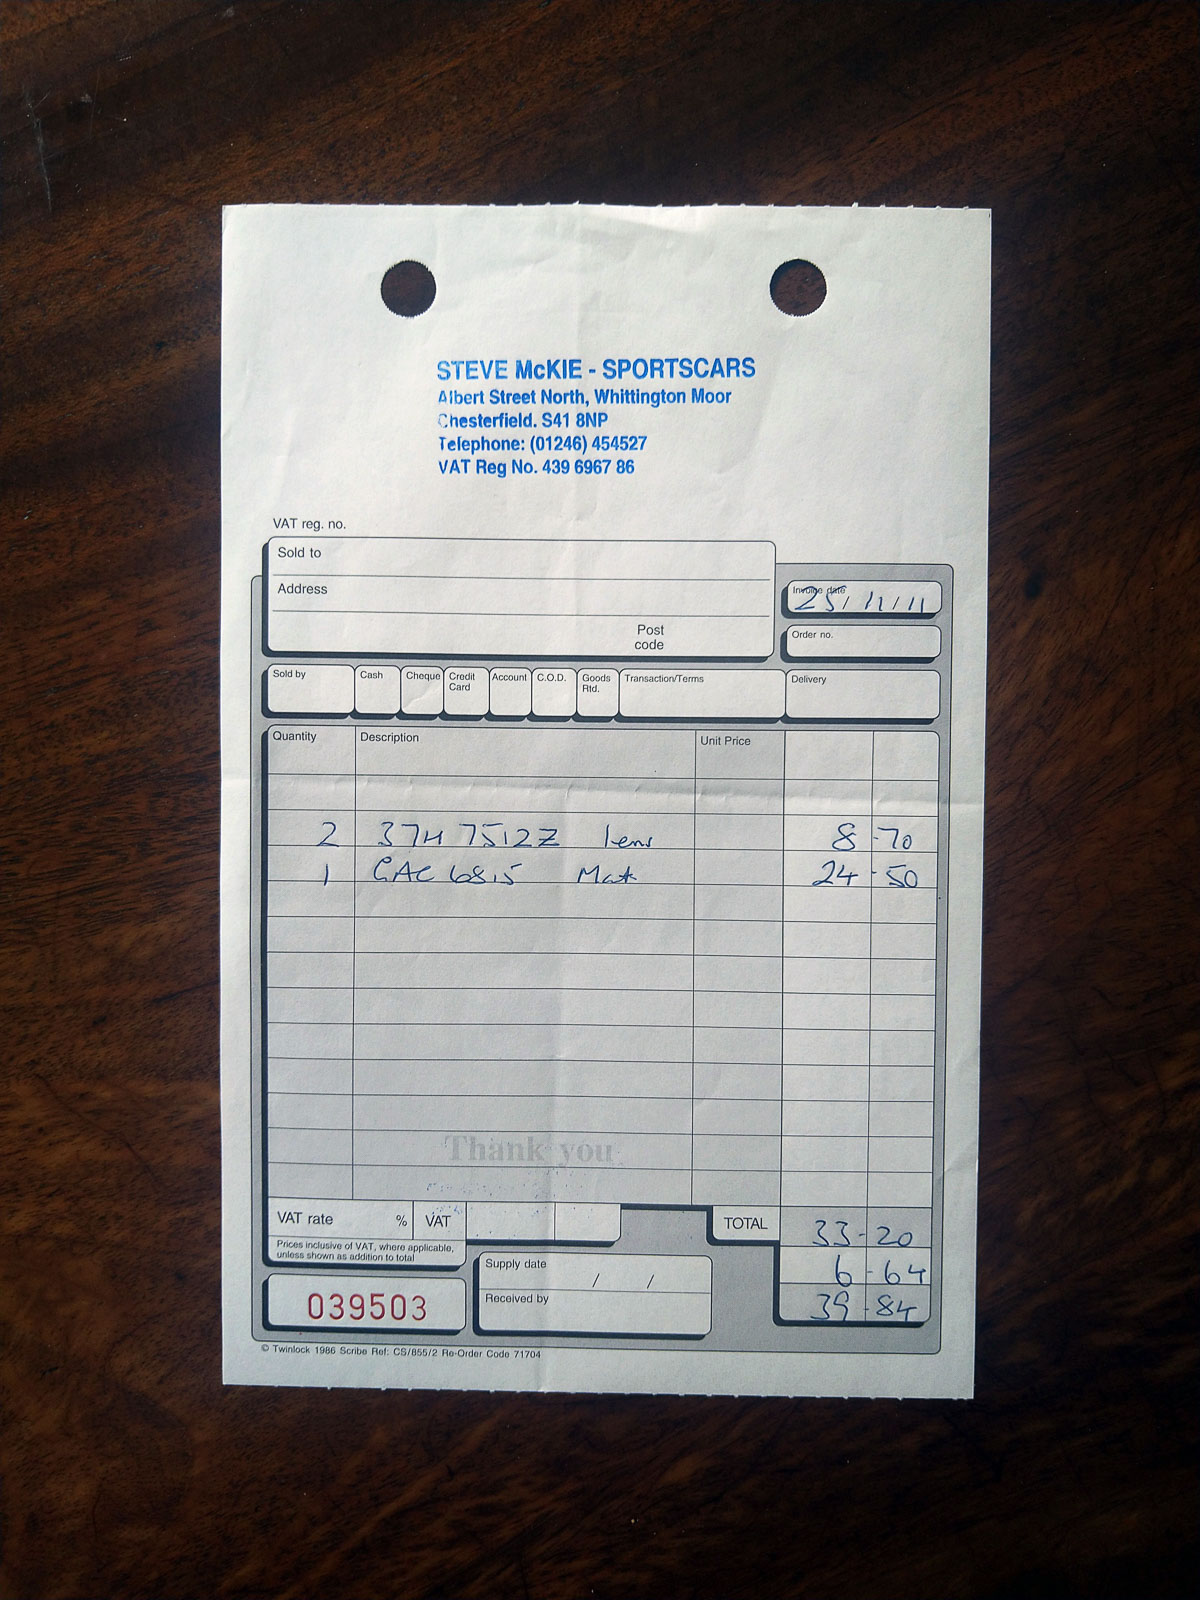 STEVE McKIE - SPORTSCARS
Albert Street North, Whittington Moor
Chesterfield. S41 8NP
Telephone: (01246) 454527
VAT Reg No. 439 6967 86
VAT reg. no.
Sold to
Address
Post code
Invoice date 25/11/11
Order no.
Sold by Cash Cheque Credit Card Account C.O.D. Goods Rtd. Transaction/Terms Delivery
Quantity Description Unit Price
2 37H 7512Z lens 8-70
1 CAC 6815 24-50
Thank you
VAT rate % VAT TOTAL 33-20
Prices inclusive of VAT, where applicable,
unless shown as addition to total
6-64
Supply date / /
Received by
39-84
039503
© Twinlock 1986 Scribe Ref: CS/855/2 Re-Order Code 71704